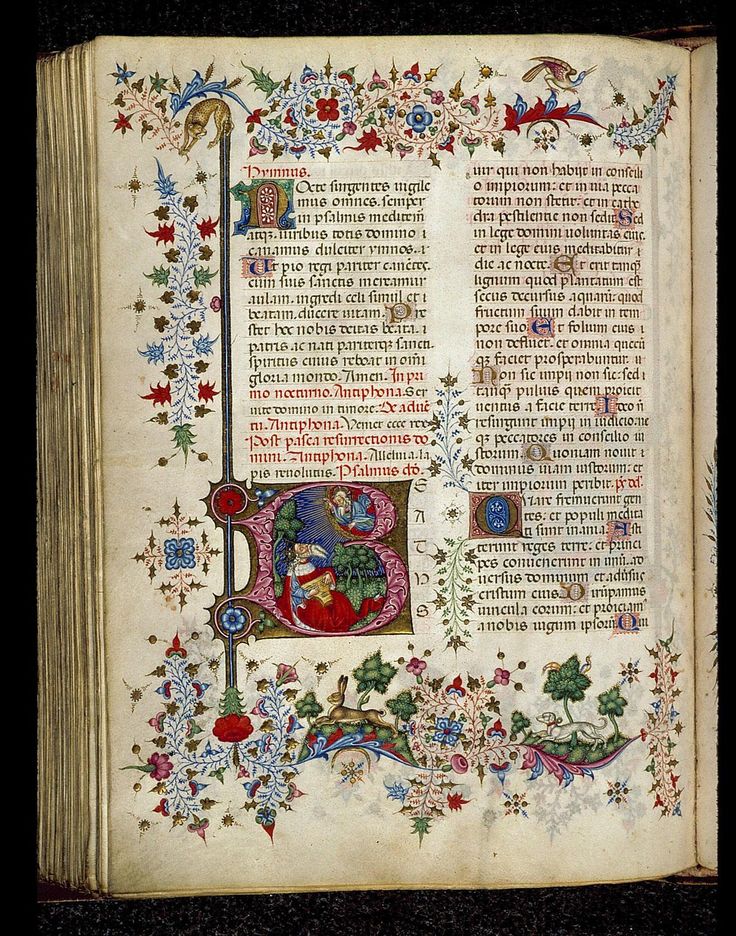 Hymnus.
Nocte surgentes vigile
mus omnes. semper
in psalmis meditem̃
atqʒ uiribus totis domino i
canamus dulciter ymnos. i
Ut pio regi pariter canẽtes.
cum suis sanctis mereamur
aulam. ingredi celi simul et i
beatam. ducere uitam. Pre
stet hoc nobis deitas beata. i
patris. ac nati pariterqʒ sancti
spiritus cuius reboat in om̃i
gloria mundo. Amen. In pri
mo nocturno. Antiphona. Ser
uite domino in timore. De aduẽ
tu. Antiphona. Veniet ecce rex
Post pasca resurrectionis do
mini. Antiphona. Alleluia. la
pis reuolutus. Psalmus dd.
B
E
A
T
V
S
uir qui non habijt in consili
o impiorum: et in uia pecca
torum non stetit: et in cathe
dra pestilentie non sedit. Sed
in lege domini uoluntas eius:
et in lege eius meditabitur i
die ac nocte. Et erit tanqʒ
lignum quod plantatum est
secus decursus aquarũ: quod
fructum suum dabit in tem
pore suo. Et folium eius i
non defluet: et omnia quecũ
qʒ faciet prosperabuntur. ii
Non sic impij non sic: sed i
tanqʒ puluis quem proicit
uentus a facie terre. Ideo ñ
resurgunt impij in iudicio: ne
qʒ peccatores in consilio iu
storum. Quoniam nouit i
dominus uiam iustorum: et
iter impiorum peribit. ps dd.
Quare fremuerunt gen
tes: et populi medita
ti sunt inania. Asti
terunt reges terre: et princi
pes conuenerunt in unũ. ad
uersus dominum et aduersus
cristum eius. Dirupamus
uincula eorum: et proiciam9
a nobis iugum ipsorum. Qui